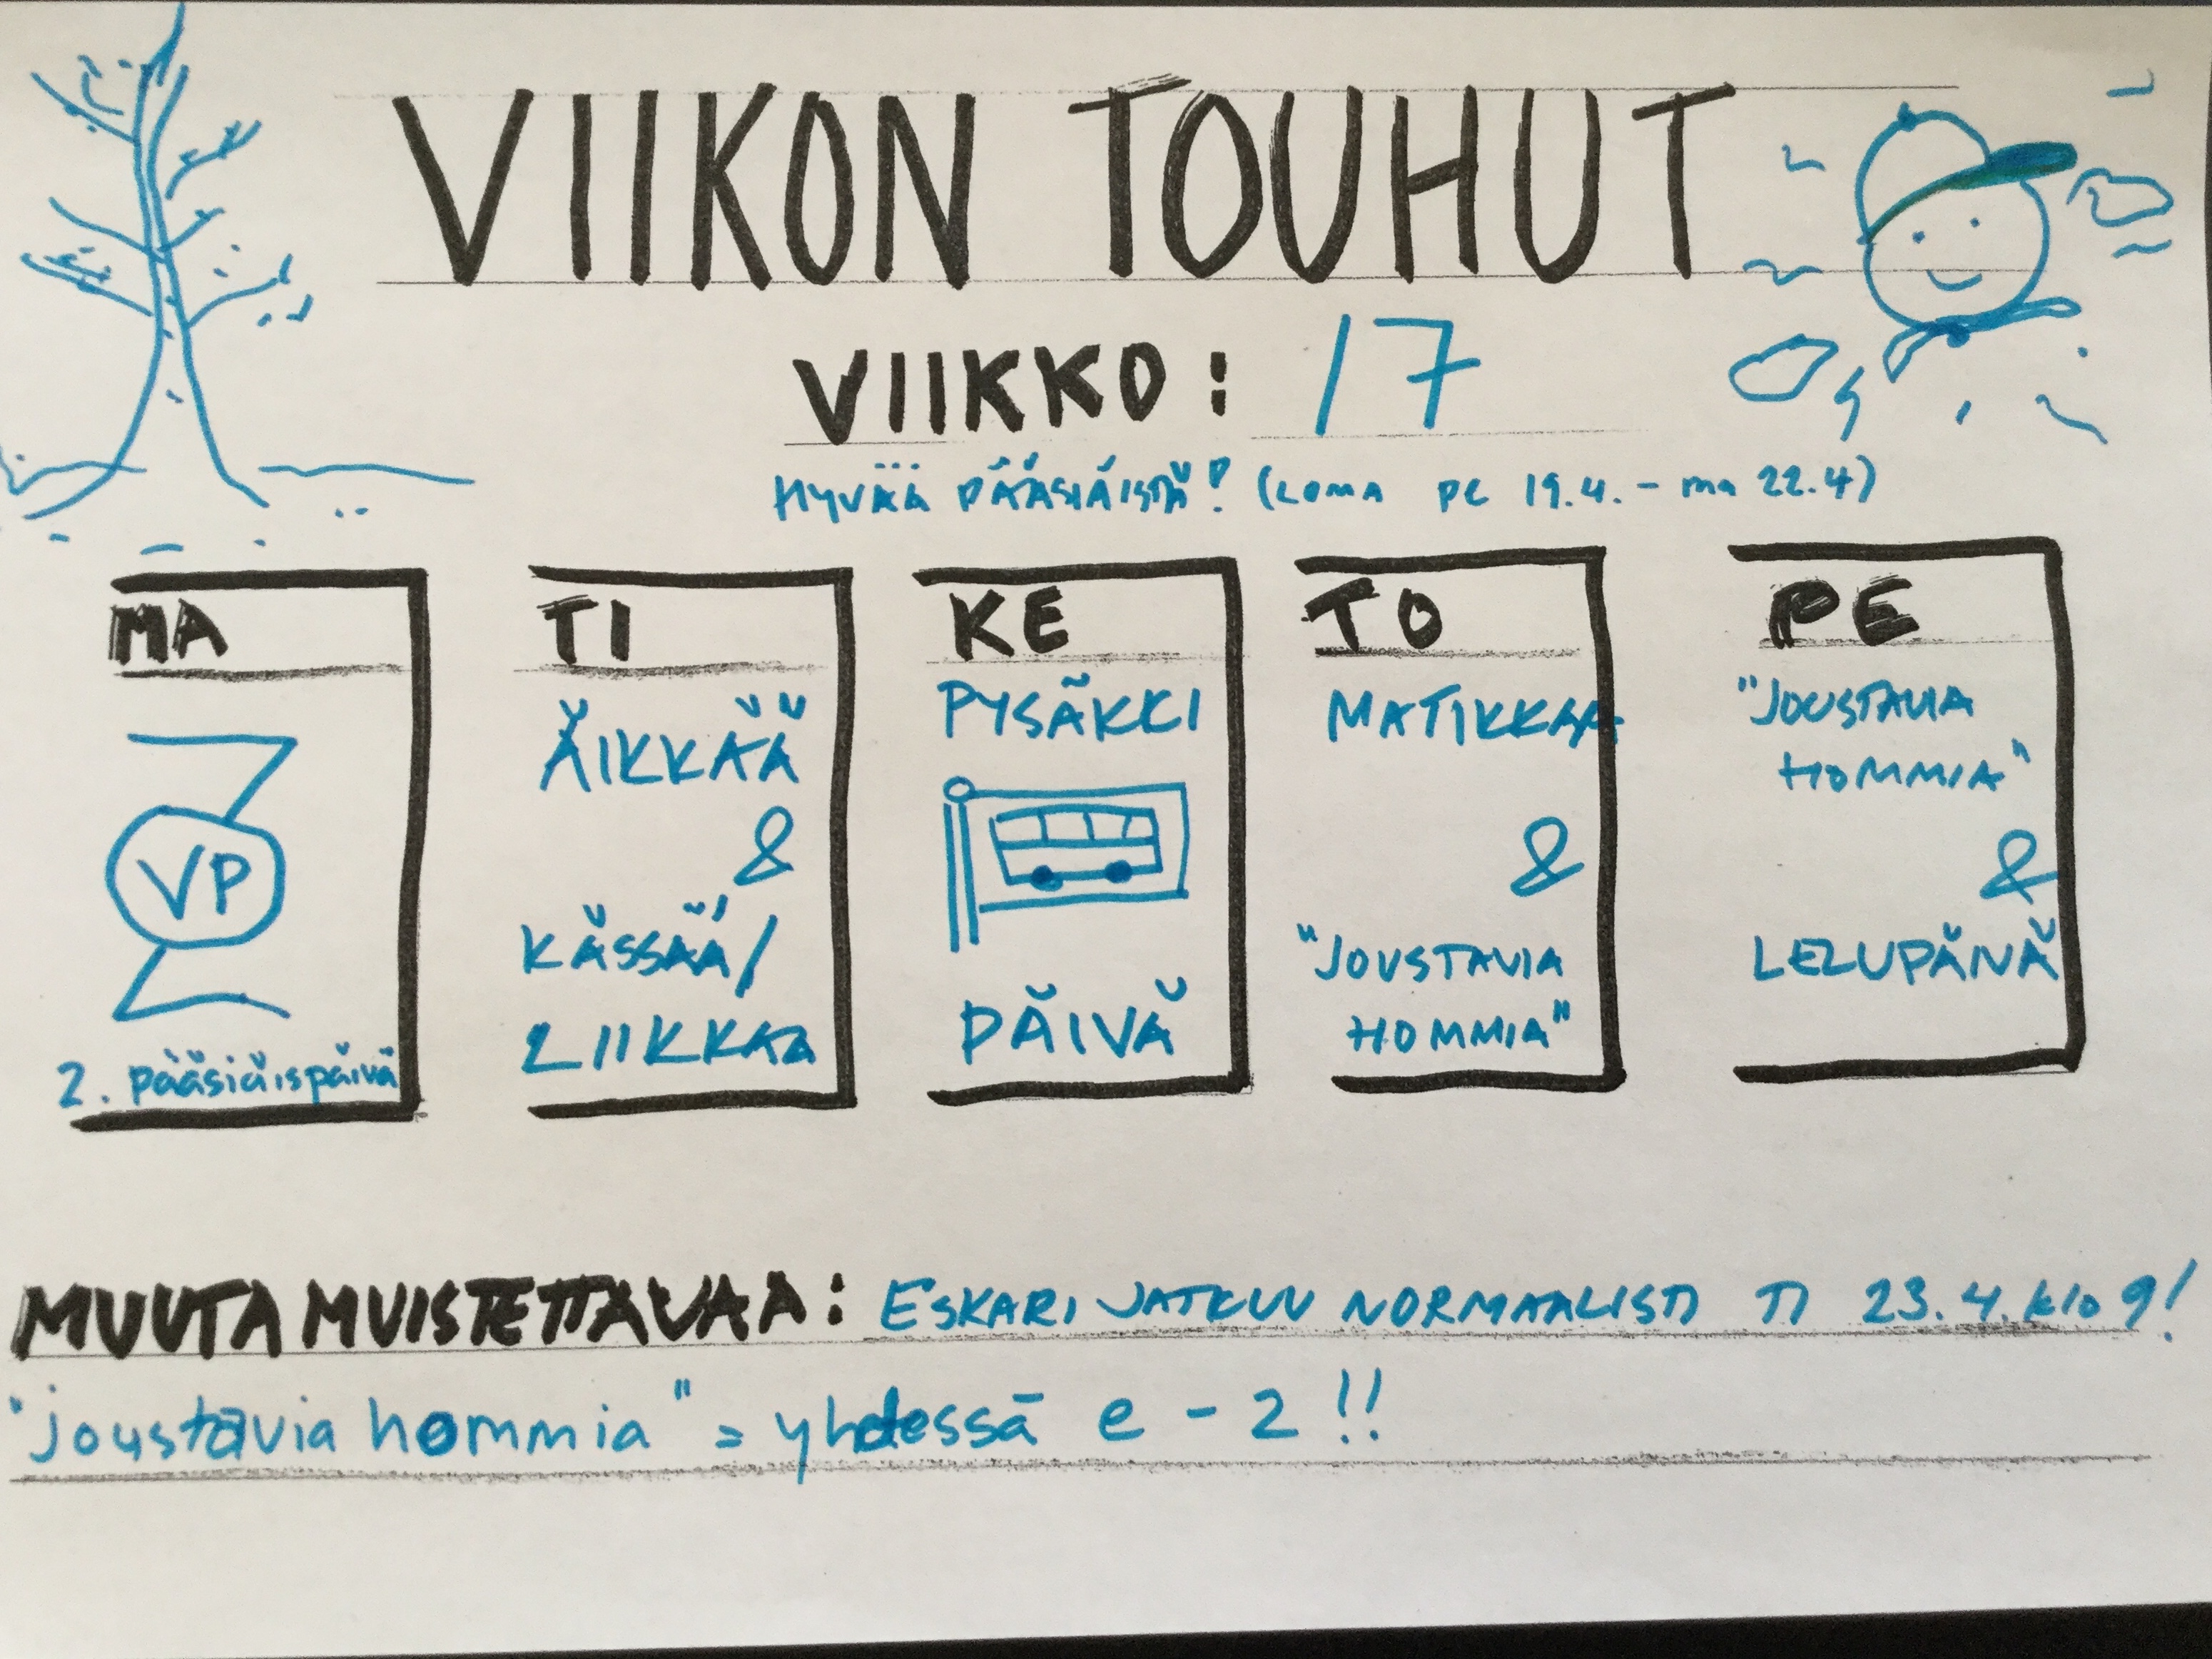 VIIKON TOUHUT
VIIKKO: 17
HYVÄÄ PÄÄSIÄISTÄ! (LOMA pe 19.4. - ma 22.4)
MA
VP
2. pääsiäispäivä
TI
ÄIKKÄÄ
&
KÄSSÄÄ/
LIIKKAA
KE
PYSÄKKI
PÄIVÄ
TO
MATIKKAA
&
"JOUSTAVIA
HOMMIA"
PE
"JOUSTAVIA
HOMMIA"
&
LELUPÄIVÄ
MUUTA MUISTETTAVAA: ESKARI JATKUU NORMAALISTI TI 23.4. klo 9!
"joustavia hommia" = yhdessä e - 2 !!